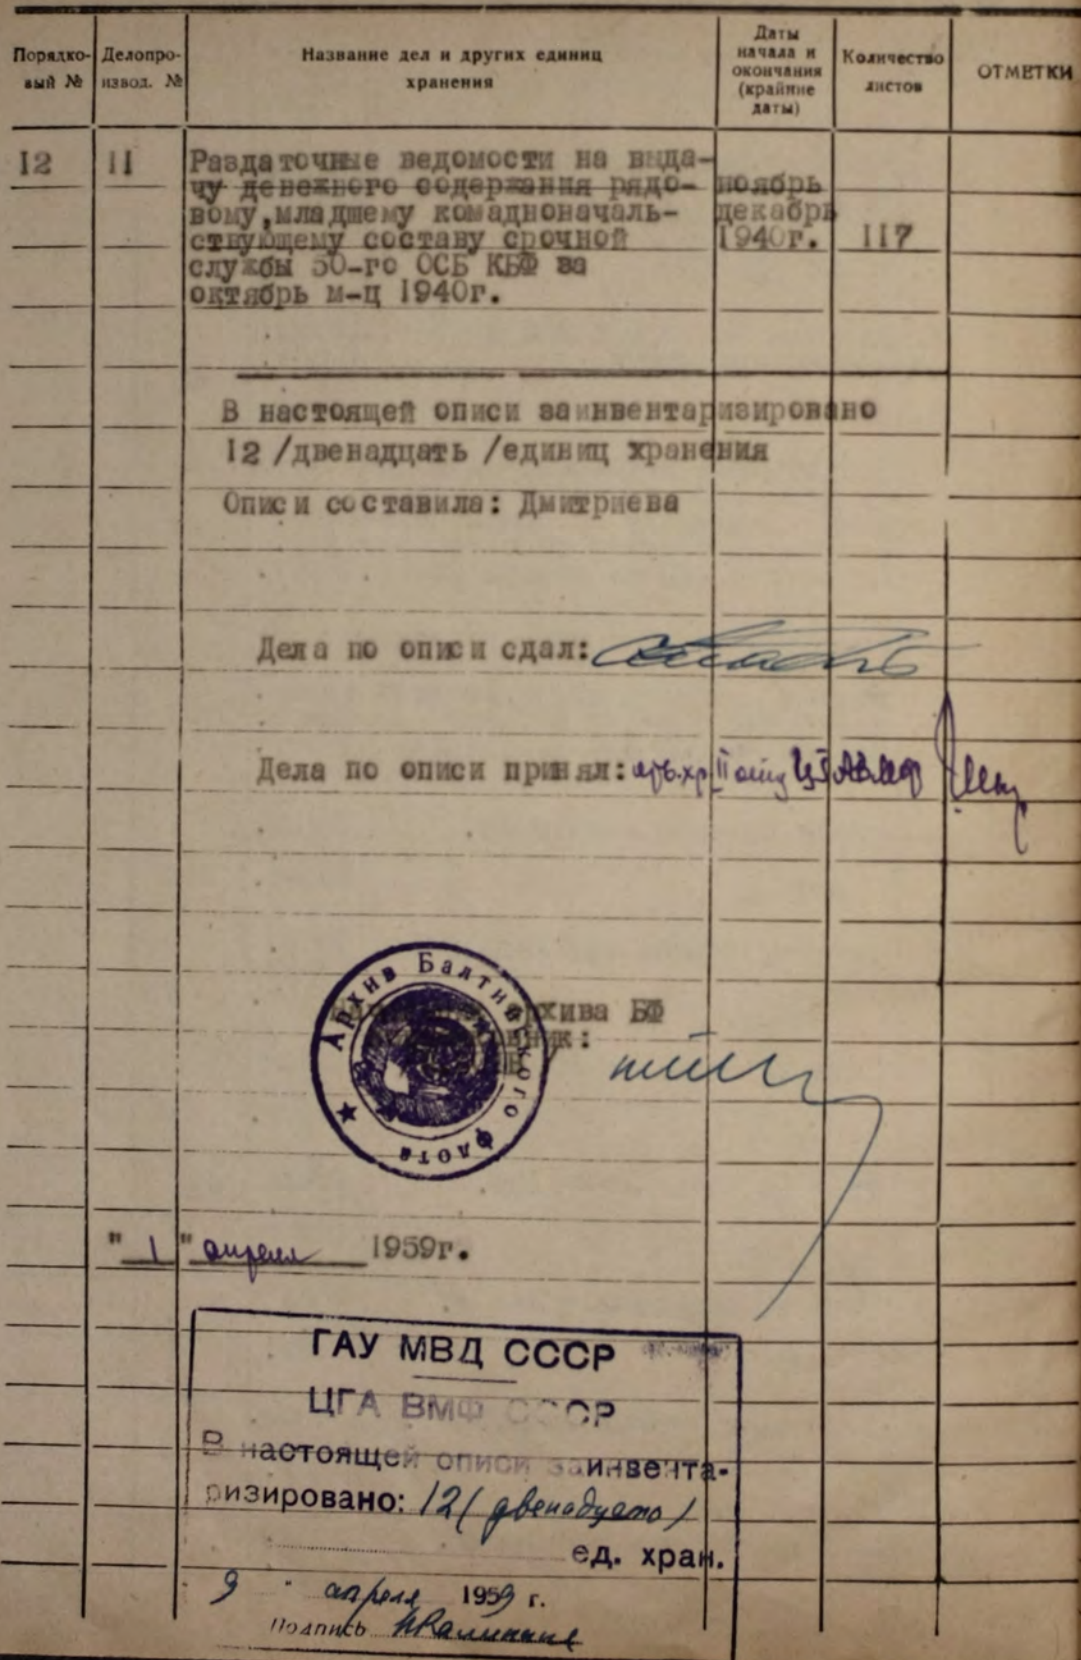 Порядко-вый № Делопро-извод. № Название дел и других единиц хранения Даты начала и окончания (крайние даты) Количество листов ОТМЕТКИ
12 11 Раздаточные ведомости на выда-
чу денежного содержания рядо- ноябрь
вому,младшему комадноначаль- декабрь
ствующему составу срочной 1940г. 117
службы 50-го ОСБ КБФ за
октябрь м-ц 1940г.
В настоящей описи заинвентаризировано
12 /двенадцать /единиц хранения
Описи составила: Дмитриева
Дела по описи сдал:
Дела по описи принял: арх.хр II ЦГАВМФ
Архив Балтийского флота
архива БФ
"1" апреля 1959г.
ГАУ МВД СССР
ЦГА ВМФ СССР
В настоящей описи заинвента-
ризировано: 12 (двенадцать)
ед. хран.
9 " апреля 1959 г.
Подпись НКалинина